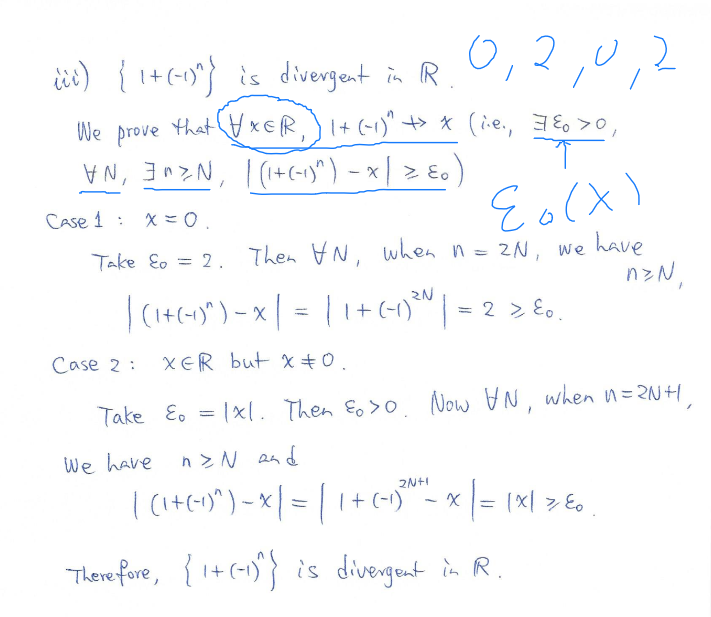 iii) {1+(-1)ⁿ} is divergent in ℝ. 0, 2, 0, 2
We prove that ∀x∈ℝ, 1+(-1)ⁿ ↛ x (i.e., ∃ε₀>0,
∀N, ∃n≥N, |(1+(-1)ⁿ)-x| ≥ ε₀)
ε₀(x)
Case 1 : x=0.
Take ε₀ = 2. Then ∀N, when n = 2N, we have
n≥N,
|(1+(-1)ⁿ)-x| = |1+(-1)²ᴺ| = 2 ≥ ε₀.
Case 2 : x∈ℝ but x≠0.
Take ε₀ = |x|. Then ε₀>0. Now ∀N, when n=2N+1,
we have n≥N and
|(1+(-1)ⁿ)-x| = |1+(-1)²ᴺ⁺¹-x| = |x| ≥ ε₀.
Therefore, {1+(-1)ⁿ} is divergent in ℝ.